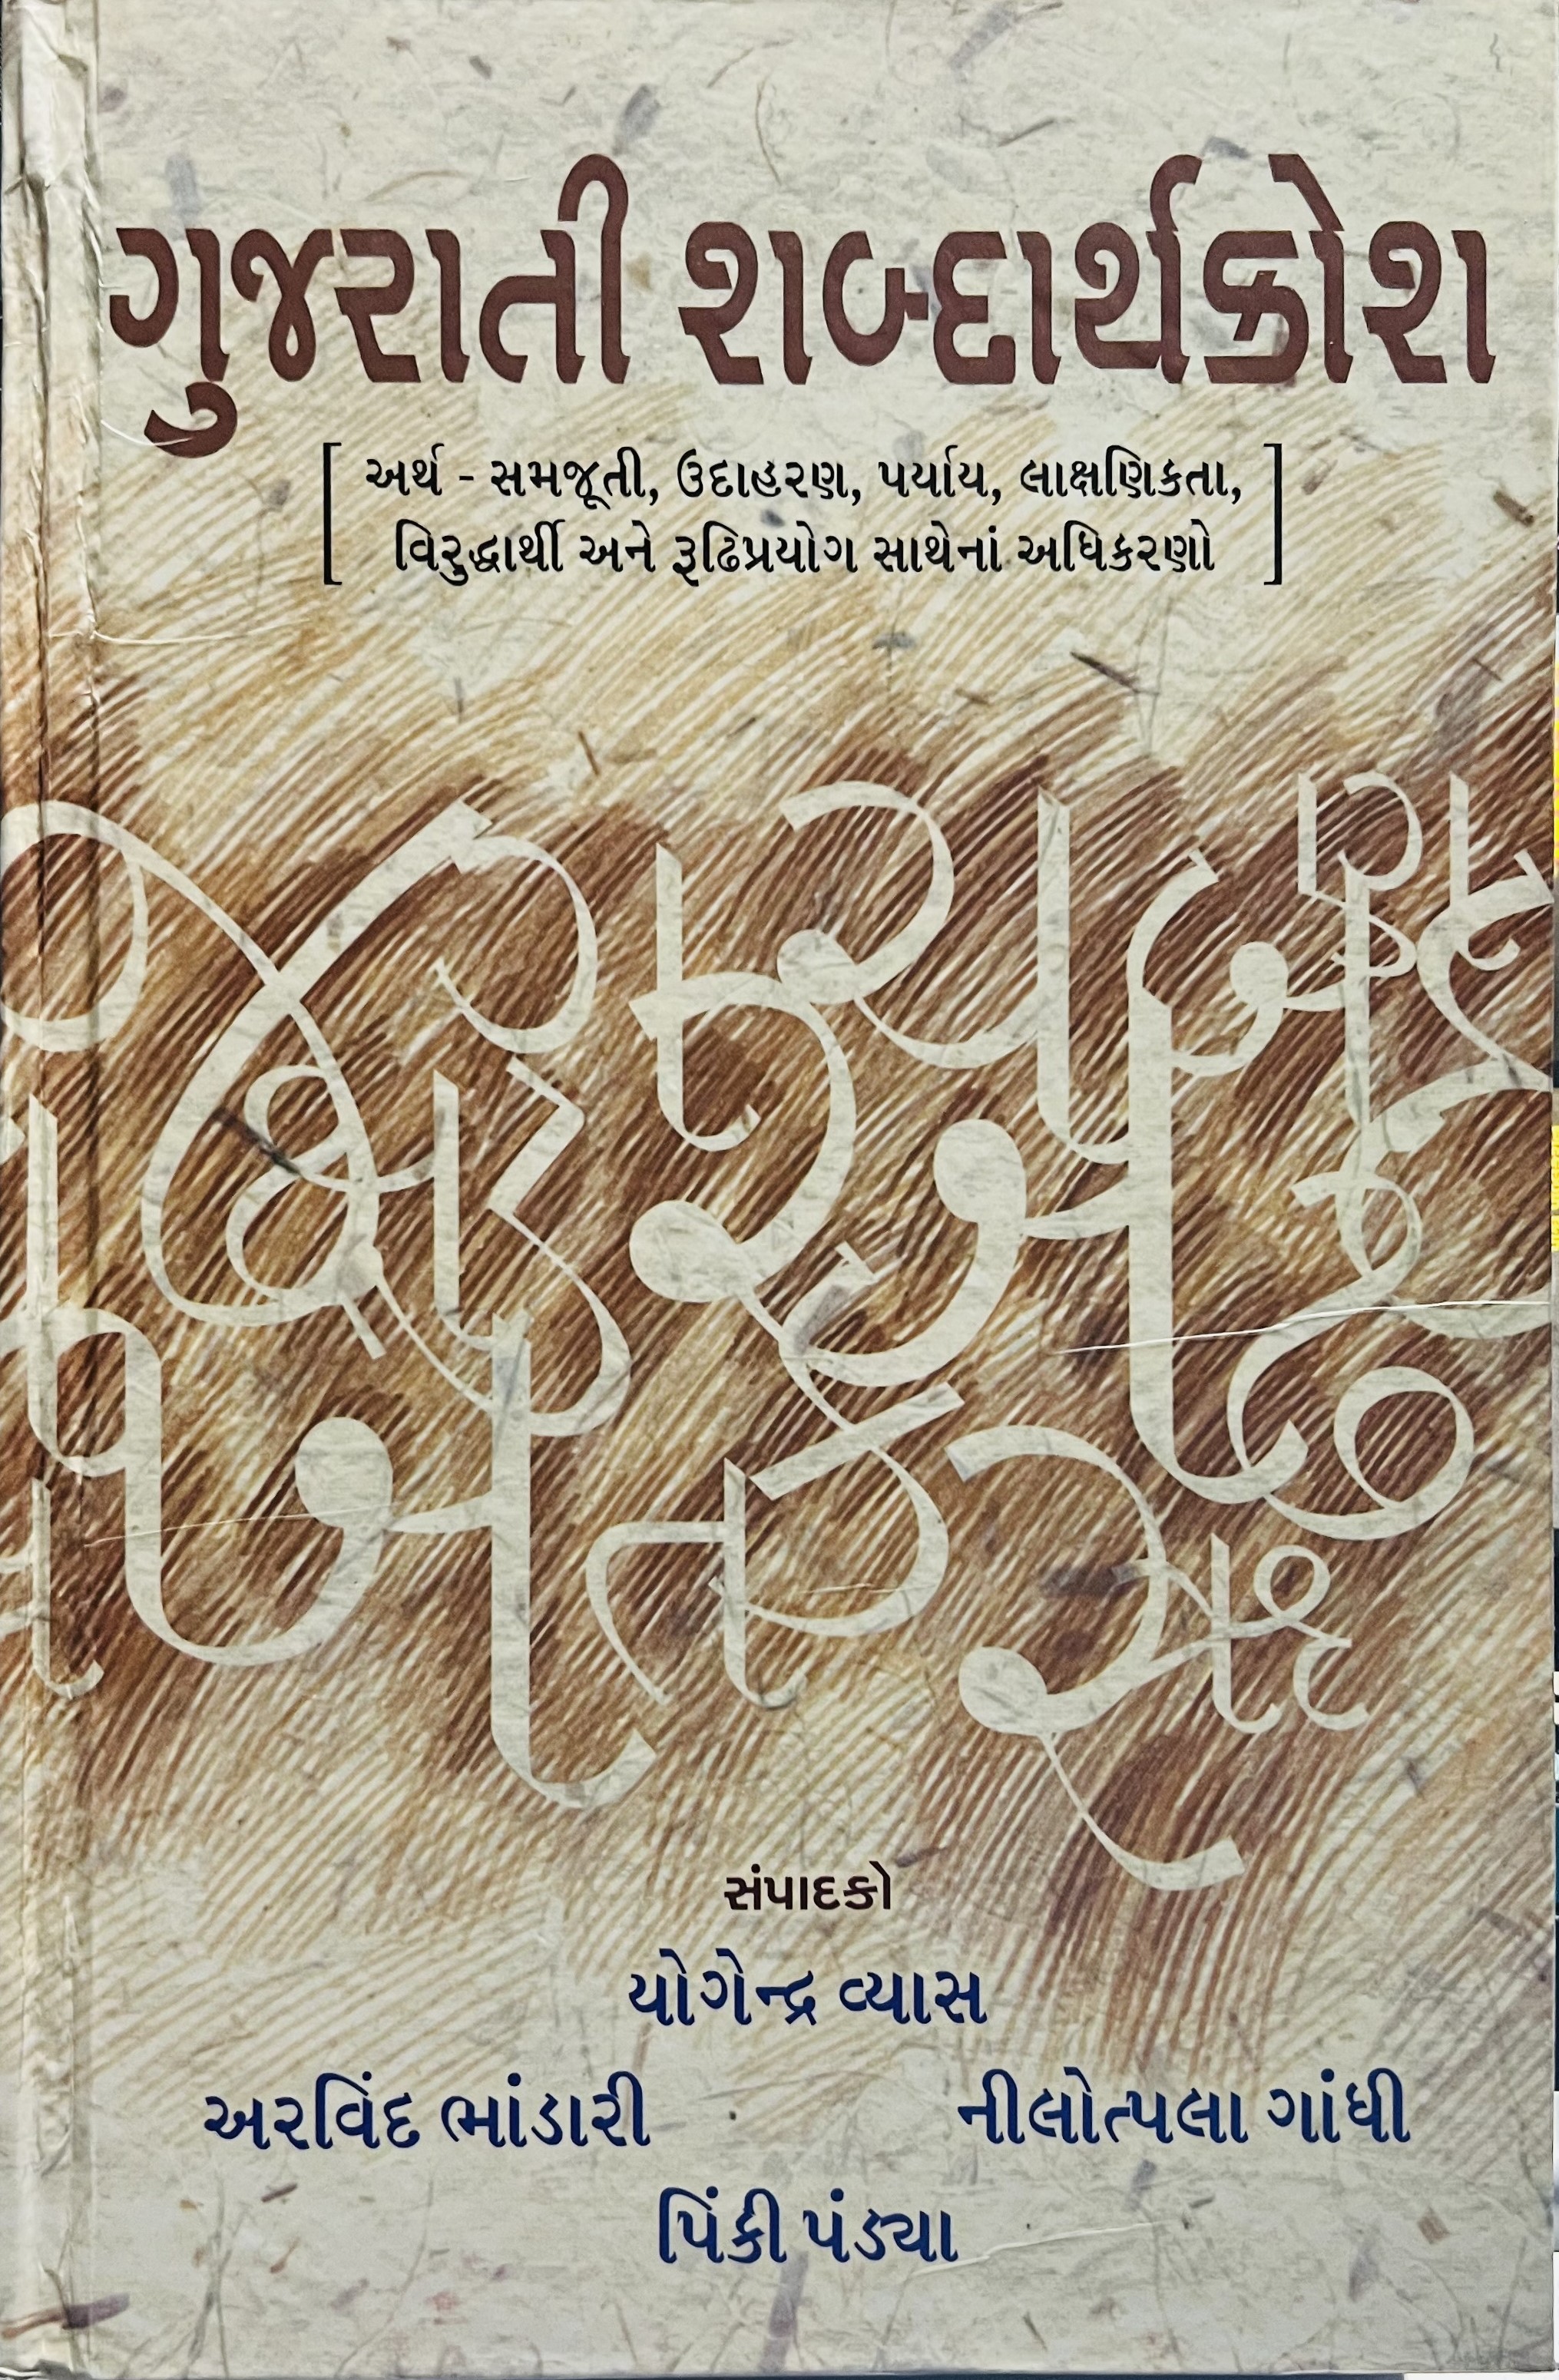 ગુજરાતી શબ્દાર્થકોશ
[ અર્થ - સમજૂતી, ઉદાહરણ, પર્યાય, લાક્ષણિકતા,
વિરુદ્ધાર્થી અને રૂઢિપ્રયોગ સાથેનાં અધિકરણો ]
સંપાદકો
યોગેન્દ્ર વ્યાસ
અરવિંદ ભાંડારી નીલોત્પલા ગાંધી
પિંકી પંડ્યા